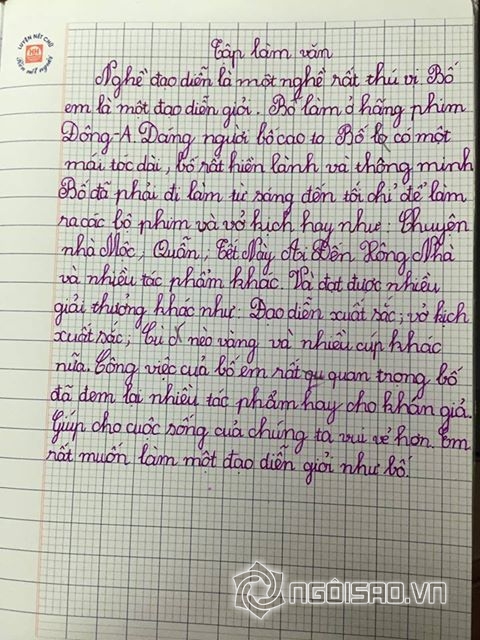 LUYỆN NÉT CHỮ
Rèn nết người
Tập làm văn
Nghề đạo diễn là một nghề rất thú vi Bố
em là một đạo diễn giỏi. Bố làm ở hãng phim
Đông-A. Dáng người bố cao to Bố có một
mái toc dài, bố rất hiền lành và thông minh
Bố đã phải đi làm từ sáng đến tối chỉ để làm
ra các bộ phim và vở kịch hay như: Chuyện
nhà Mộc, Quẫn, Tết Này Ai Đến Xông Nhà
và nhiều tác phẩm khác. Và đạt được nhiều
giải thưởng khác như: Đạo diễn xuất sắc; vở kịch
xuất sắc, Cù nèo vàng và nhiều cúp khác
nữa. Công việc của bố em rất quan trọng bố
đã đem lại nhiều tác phẩm hay cho khán giả.
Giúp cho cuộc sống của chúng ta vui vẻ hơn. Em
rất muốn làm một đạo diễn giỏi như bố.
NGÔISAO.VN